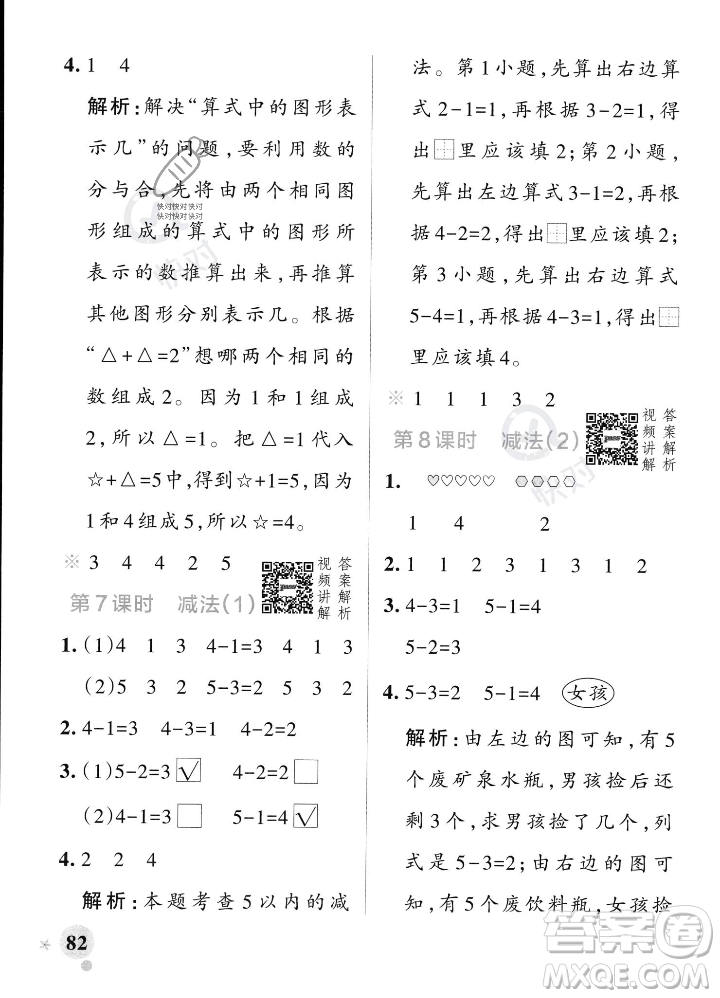 4. 1 4
解析:解决“算式中的图形表
示几”的问题,要利用数的
分与合,先将由两个相同图
形组成的算式中的图形所
表示的数推算出来,再推算
其他图形分别表示几。根据
“△+△=2”想哪两个相同的
数组成2。因为1和1组成
2,所以△=1。把△=1代入
☆+△=5中,得到☆+1=5,因为
1和4组成5,所以☆=4。
※ 3 4 4 2 5
视频讲解
答案解析
第7课时 减法(1)
1. (1)4 1 3 4-1=3 4 1 3
(2)5 3 2 5-3=2 5 3 2
2. 4-1=3 4-3=1 4-2=2
3. (1)5-2=3☑ 4-2=2□
(2)4-1=3□ 5-1=4☑
4. 2 2 4
解析:本题考查5以内的减
82
法。第1小题,先算出右边算
式2-1=1,再根据3-2=1,得
出□里应该填2;第2小题,
先算出左边算式3-1=2,再
根据4-2=2,得出□里应该
填2;第3小题,先算出右边算式
5-4=1,再根据4-3=1,得出□
里应该填4。
※ 1 1 1 3 2
视频讲解
答案解析
第8课时 减法(2)
1. ♡♡♡♡♡ ⬡⬡⬡⬡
1 4 2
2. 1 1 2 3 1 3 1 2
3. 4-3=1 5-1=4
5-2=3
4. 5-3=2 5-1=4 女孩
解析:由左边的图可知,有5
个废矿泉水瓶,男孩捡后还
剩3个,求男孩捡了几个,列
式是5-3=2。由右边的图可
知,有5个废饮料瓶,女孩捡
快对快对快对
快对快对快对
快对
快对
答案圈
MXQE.COM